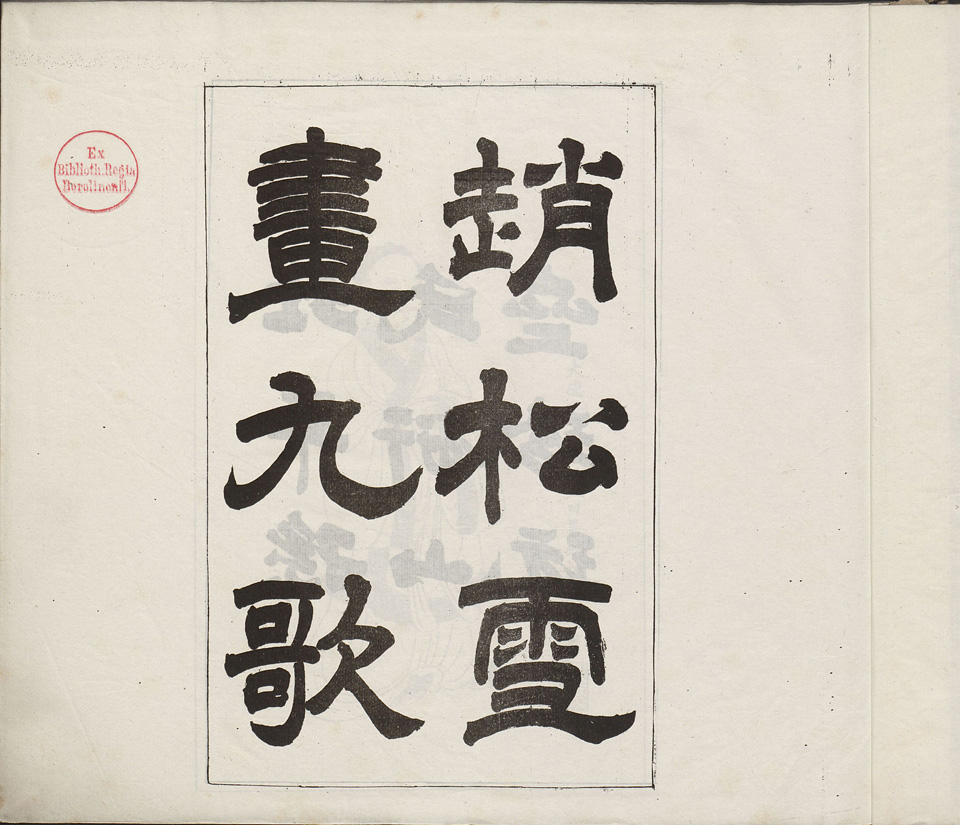 趙松雪
畫九歌
Ex
Biblioth. Regia
Berolinensi.